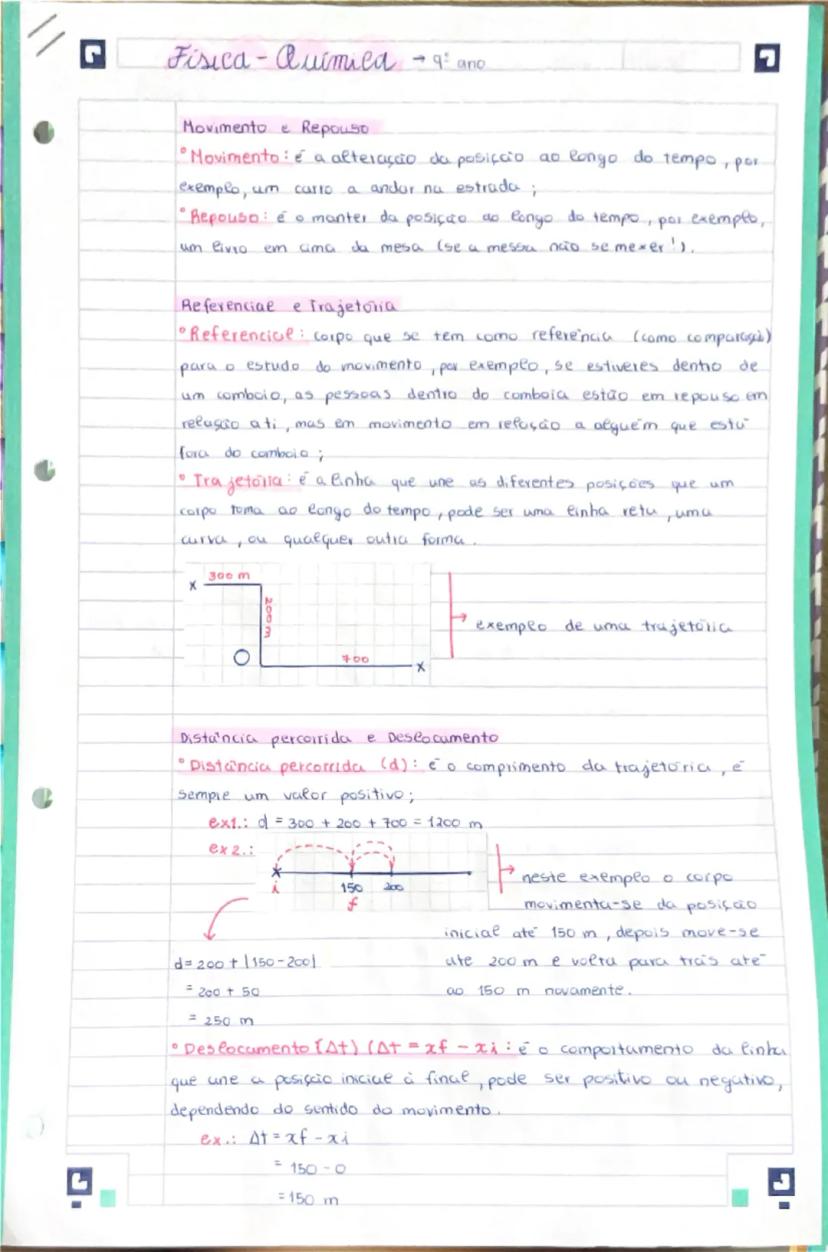 Física - Química → 9º ano
Movimento e Repouso
° Movimento: é a alteração da posição ao longo do tempo, por
exemplo, um carro a andar na estrada;
° Repouso: é o manter da posição ao longo do tempo, por exemplo,
um livro em cima da mesa (se a messa não se mexer!).
Referencial e Trajetória
° Referencial: corpo que se tem como referência (como comparação)
para o estudo do movimento, por exemplo, se estiveres dentro de
um comboio, as pessoas dentro do comboia estão em repouso em
relação a ti, mas em movimento em relação a alguém que está
fora do comboio;
° Trajetória: é a linha que une as diferentes posições que um
corpo toma ao longo do tempo, pode ser uma linha reta, uma
curva, ou qualquer outra forma.
x 300 m
200 m
700 x
→ exemplo de uma trajetória
Distância percorrida e Deslocamento
° Distância percorrida (d): é o comprimento da trajetória, é
sempre um valor positivo;
ex1.: d = 300 + 200 + 700 = 1200 m
ex2.:
x 150 200
i f
→ neste exemplo o corpo
movimenta-se da posição
inicial até 150 m, depois move-se
até 200 m e volta para trás até
ao 150 m novamente.
d = 200 + |150 - 200|
= 200 + 50
= 250 m
° Deslocamento [Δt) (Δt = xf - xi: é o comportamento da linha
que une a posição inicial à final, pode ser positivo ou negativo,
dependendo do sentido do movimento.
ex.: Δt = xf - xi
= 150 - 0
= 150 m